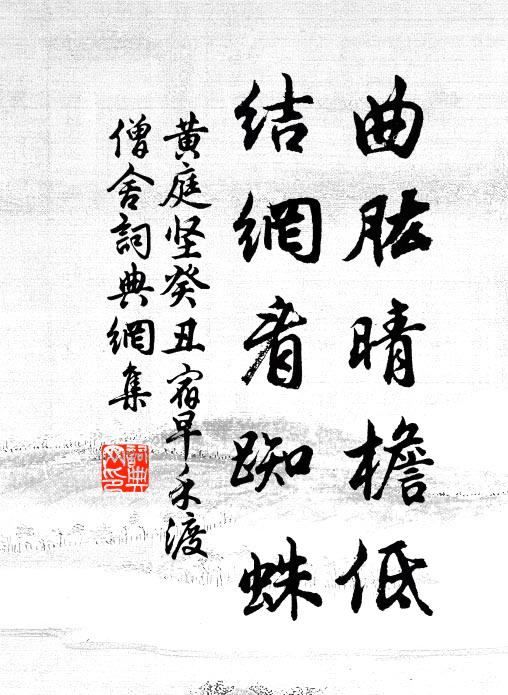 曲肱晴檐低
结網看踟蛛
黄庭坚癸丑宿早禾渡
僧舍詞典網集
詞典网印